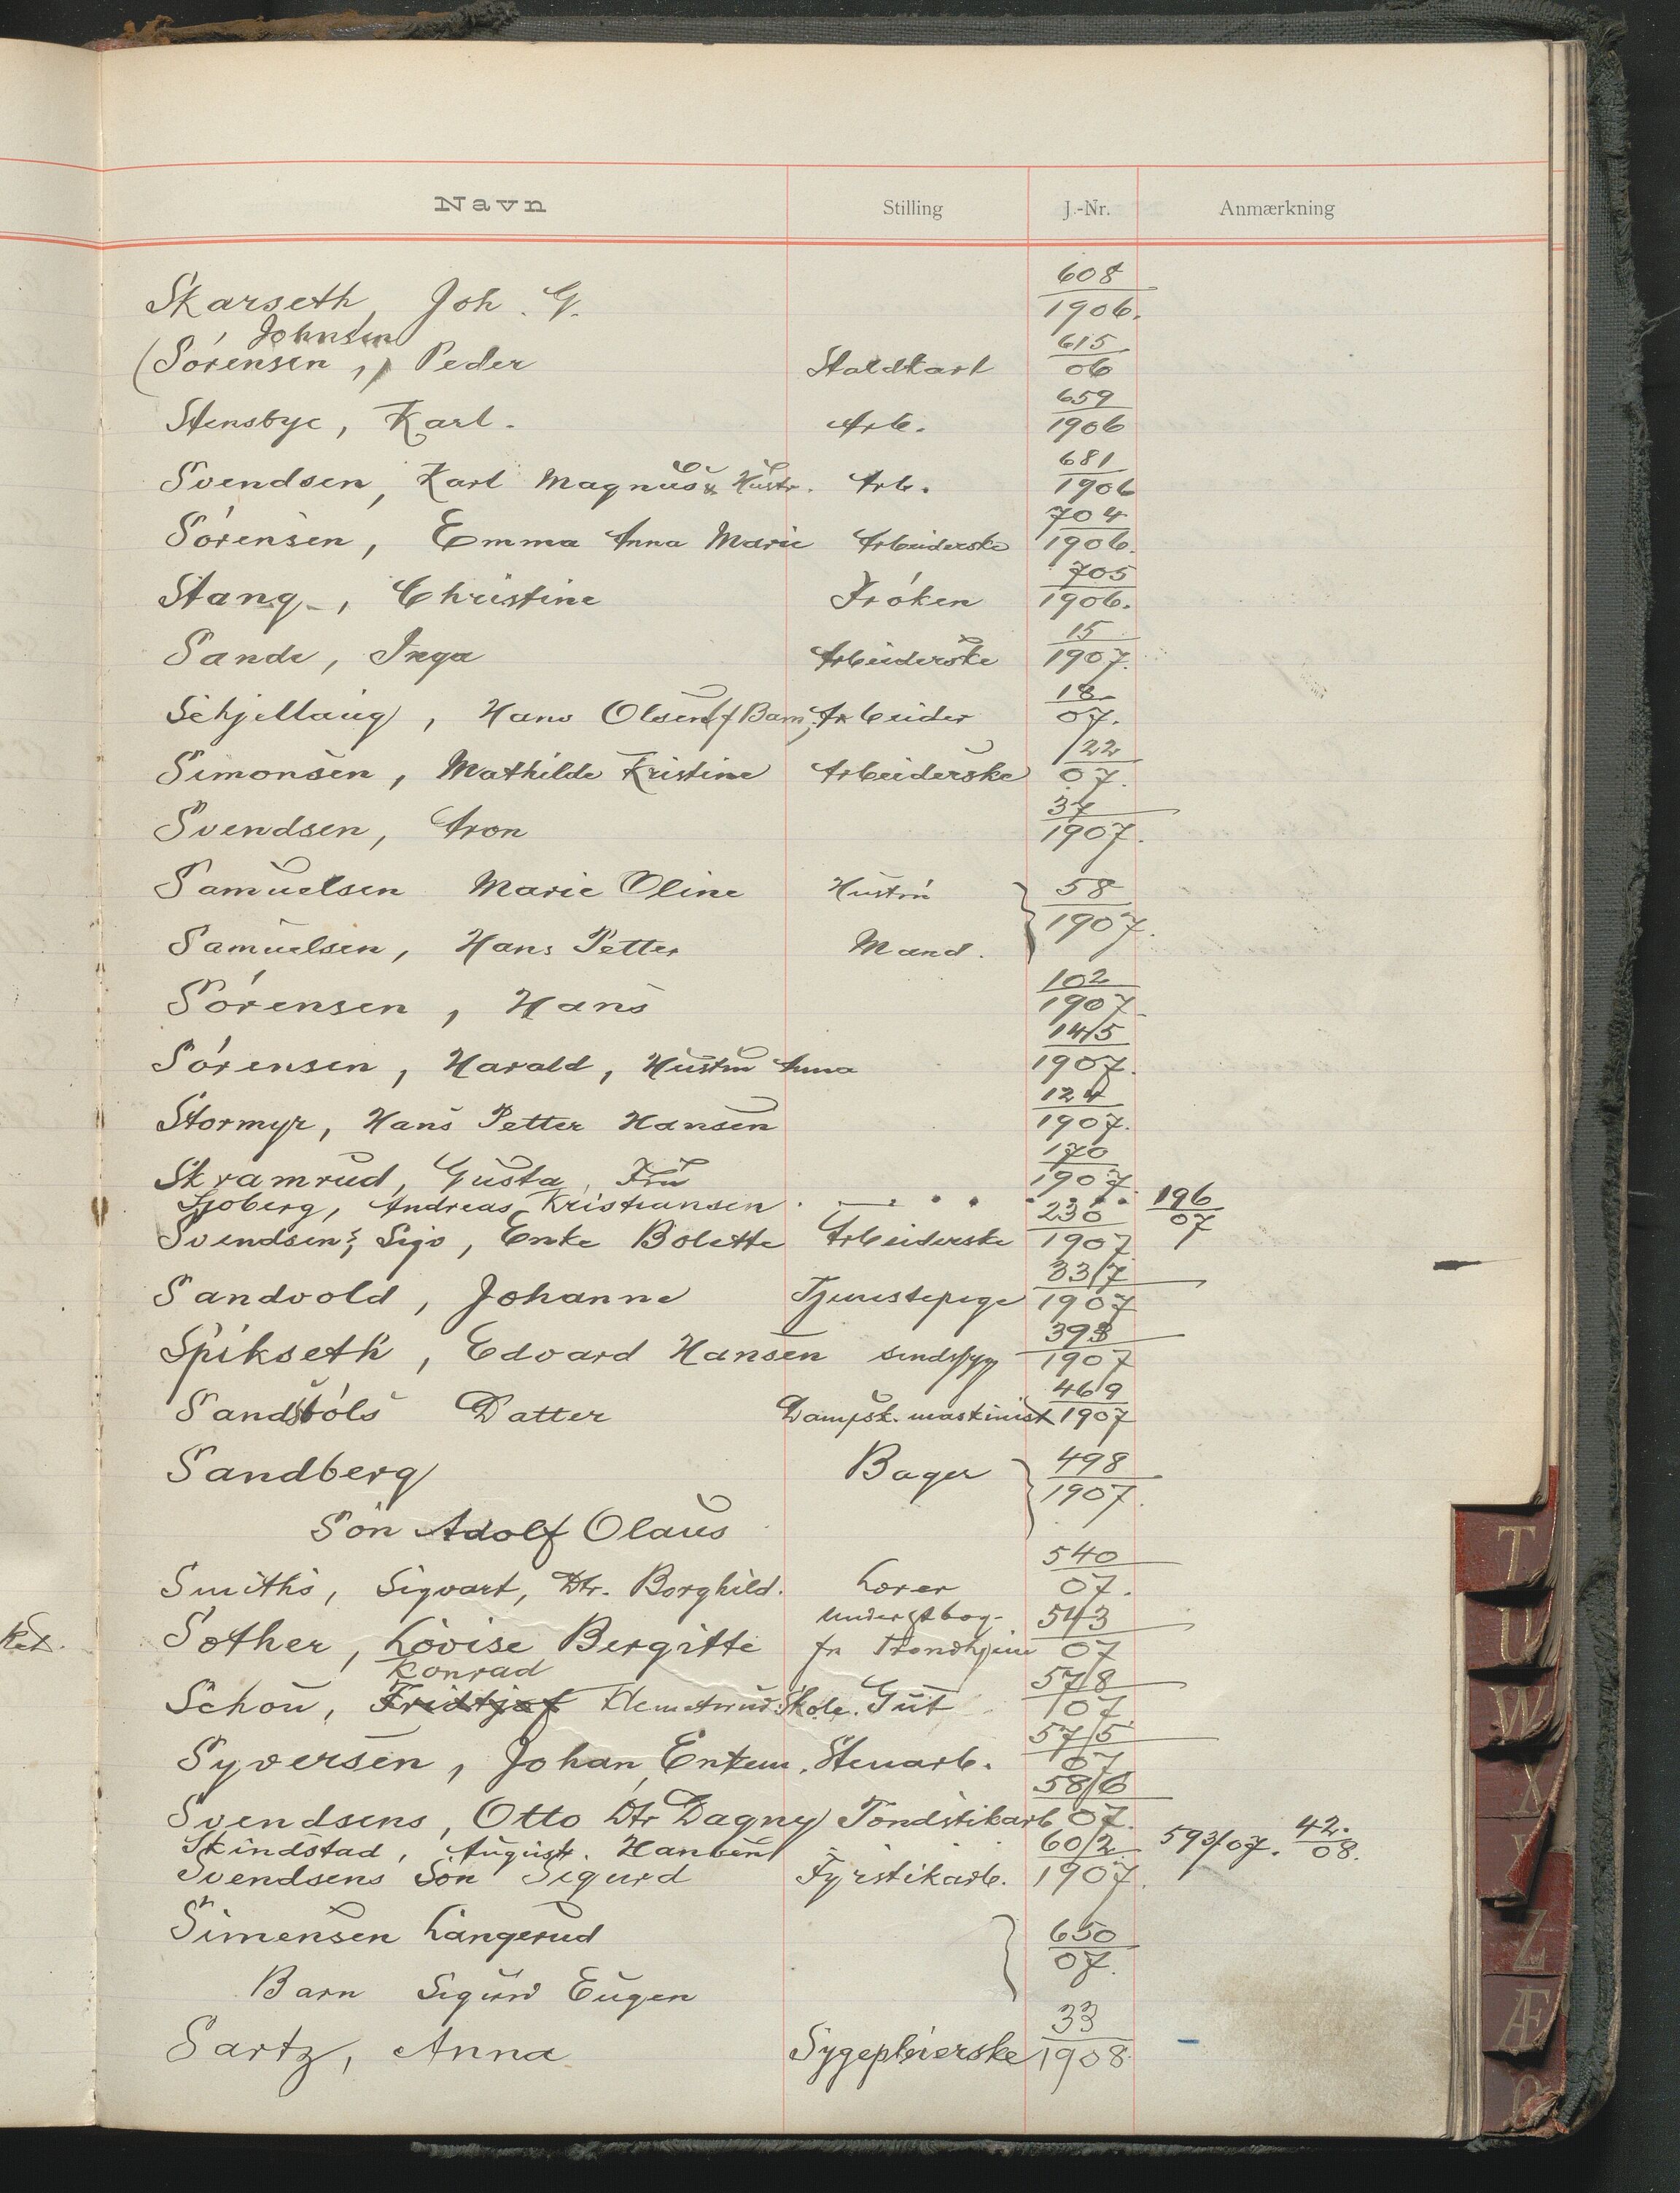 Navn Stilling J.-Nr. Anmærkning
Skarseth, Joh. G. 608/1906.
Johnsen
(Sørensen,) Peder Staldkarl 615/06
Stensbye, Karl. Arb. 659/1906
Svendsen, Karl Magnus & Hustr. Arb. 681/1906
Sørensen, Emma Anna Marie Arbeiderske 704/1906.
Stang, Christine Frøken 705/1906.
Sande, Inga Arbeiderske 15/1907.
Schjellaug, Hans Olsen (f Barn) Arbeider 18/07.
Simonsen, Mathilde Kristine Arbeiderske 22/07.
Svendsen, Aron 37/1907.
Samuelsen Marie Oline Hustru 58/1907.
Samuelsen, Hans Petter Mand.
Sørensen, Hans 102/1907
Sørensen, Harald, Hustru Anna 145/1907.
Stormyr, Hans Petter Hansen 124/1907.
Skramrud, Gusta, Fru 170/1907
Sjøberg, Andreas Kristiansen 196/07
Svendsens, Sigv, Enke Bolette Arbeiderske 230/1907
Sandvold, Johanne Tjenestepige 337/1907
Spikseth, Edvard Hansen sindssyg 393/1907
Sandstøls Datter Dampsk. maskinist 469/1907
Sandberg Bager 498/1907.
Søn Adolf Olaus
Smiths, Sigvart, Dtr. Borghild. Lorer 540/07.
Sother, Lovise Bergitte fr Trondhjem 543/07
Konrad
Schou, Fridtjof Klemetsrud Skole. Gut 578/07
Syversen, Johan, Enkem. Stenarb. 575/07
Svendsens, Otto Dtr Dagny Tøndstikarb 586/07.
Skindstad, August. Hansen 593/07. 42./08.
Svendsens Søn Sigurd Fyrstikarb. 602/1907.
Simensen Langerud 650/07.
Barn Sigurd Eugen
Sartz, Anna Sygepleierske 33/1908
T
U
W
X
Y
Z
Æ
Ø